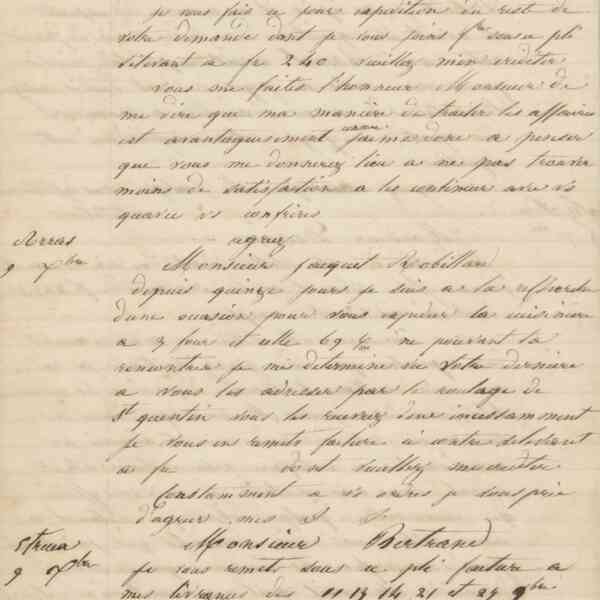 je vous fais ce jour expedition du rest de
votre demande dont je vous joins fre sous ce pli
s'élevant a fr 240 veuillez m'en créditer
vous me faites l'honneur Monsieur de
me dire que ma maniere de traiter les affaires
est avantageusement connue j'aime donc a penser
que vous me donnerez lieu a ne pas trouver
moins de satisfaction a les continuer avec vs
qu'avec vs confreres
agreez
Arras
9 Xbre
Monsieur Jacquet Robillard
depuis quinze jours je suis a la
d'une occasion pour vous la cuisiniere
a 3 four et celle 69 ne pouvant la
rencontrer je me determine vu votre derniere
a vous les adresser par le roulage de
St quentin vous les recevrez donc incessamment
je vous en remets facture ci contre s'elevant
a fr dont veuillez me créditer
Constamment a vs ordres je vous prie
d'agreer mes s
9 Xbre
Monsieur Bertrand
je vous remets sous ce pli facture a
mes livraisons des 11 13 14 21 et 29 9bre